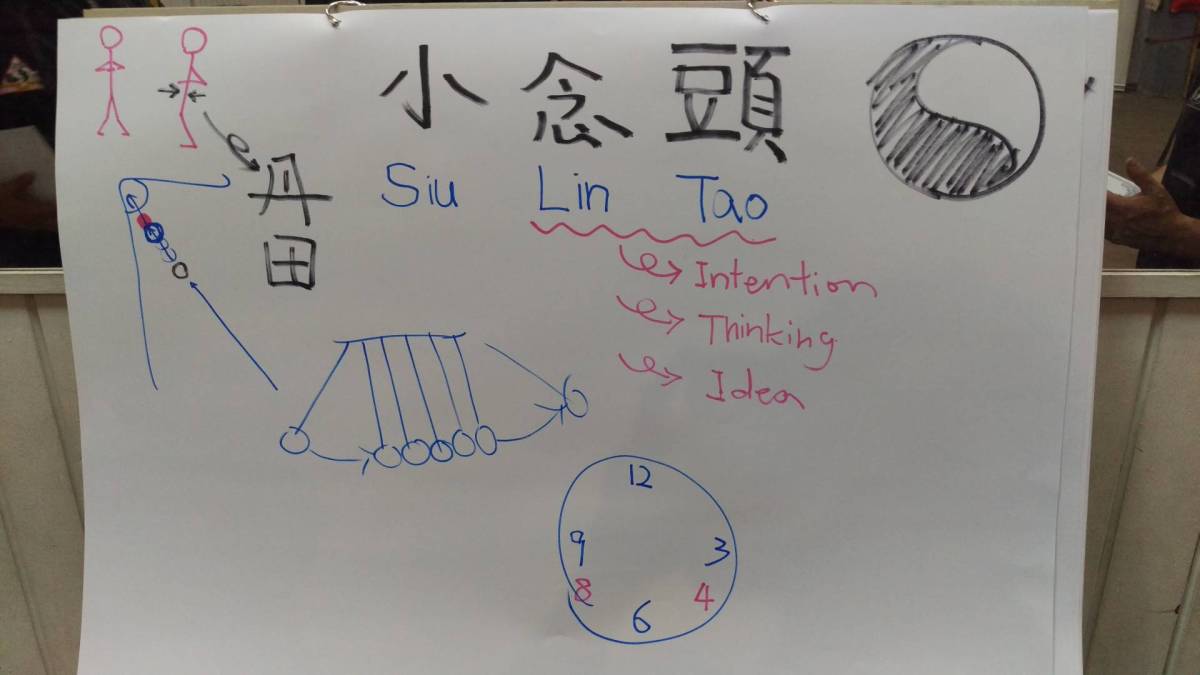 小念頭
丹田
Siu Lin Tao
Intention
Thinking
Idea
12
9 3
8 4
6